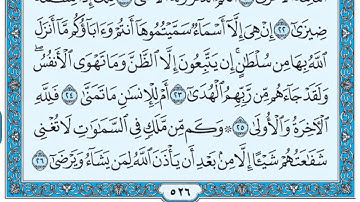 ضِيزَىٰٓ ٢٢ إِنْ هِىَ إِلَّآ أَسْمَآءٌ سَمَّيْتُمُوهَآ أَنتُمْ وَءَابَآؤُكُم مَّآ أَنزَلَ
ٱللَّهُ بِهَا مِن سُلْطَٰنٍ ۚ إِن يَتَّبِعُونَ إِلَّا ٱلظَّنَّ وَمَا تَهْوَى ٱلْأَنفُسُ ۖ
وَلَقَدْ جَآءَهُم مِّن رَّبِّهِمُ ٱلْهُدَىٰٓ ٢٣ أَمْ لِلْإِنسَٰنِ مَا تَمَنَّىٰ ٢٤ فَلِلَّهِ
ٱلْـَٔاخِرَةُ وَٱلْأُولَىٰ ٢٥ ۞ وَكَم مِّن مَّلَكٍ فِى ٱلسَّمَٰوَٰتِ لَا تُغْنِى
شَفَٰعَتُهُمْ شَيْـًٔا إِلَّا مِنۢ بَعْدِ أَن يَأْذَنَ ٱللَّهُ لِمَن يَشَآءُ وَيَرْضَىٰٓ ٢٦
٥٢٦